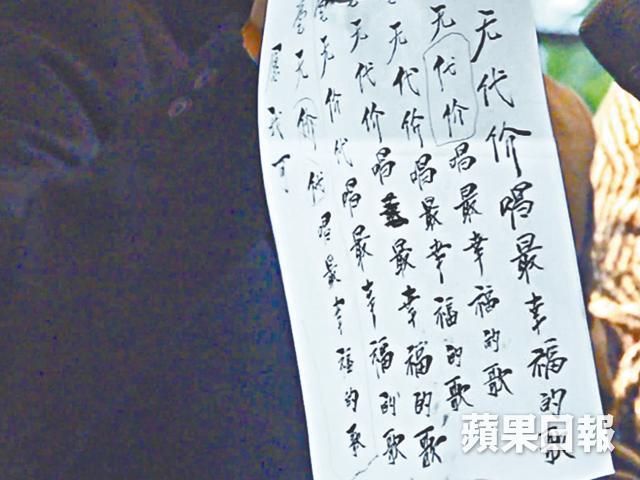 无代价唱最幸福的歌
无代价唱最幸福的歌
无代价唱最幸福的歌
无代价唱最幸福的歌
无价代唱最幸福的歌
无价代唱最幸福的歌
可
蘋果日報